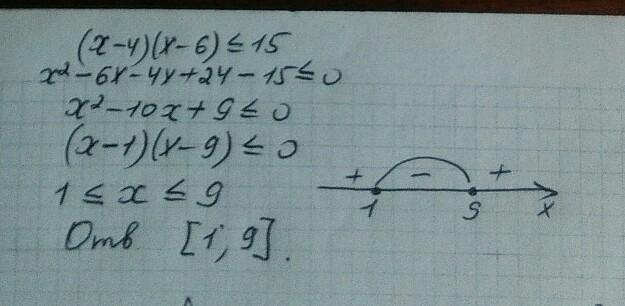 (x-4)(x-6)≤15
x²-6x-4x+24-15≤0
x²-10x+9≤0
(x-1)(x-9)≤0
1≤x≤9
+ - +
1 9 x
Отв [1; 9].